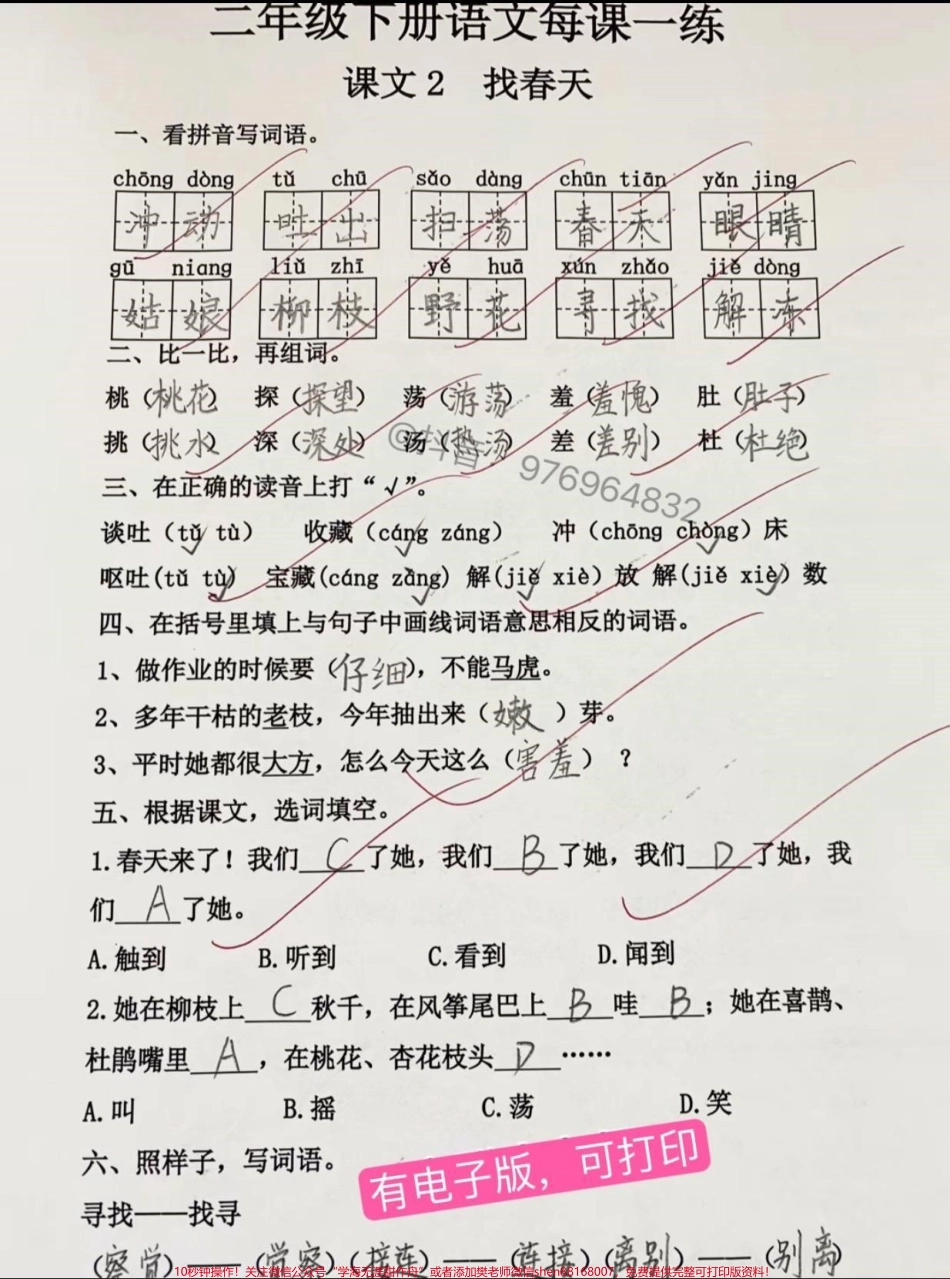 二年级下册语文每课一练
课文2 找春天
一、看拼音写词语。
chōng dòng tǔ chū sǎo dàng chūn tiān yǎn jing
冲动 吐出 扫荡 春天 眼睛
gū niang liǔ zhī yě huā xún zhǎo jiě dòng
姑娘 柳枝 野花 寻找 解冻
二、比一比，再组词。
桃（桃花） 探（探望） 荡（游荡） 羞（羞愧） 肚（肚子）
挑（挑水） 深（深处） 汤（热汤） 差（差别） 杜（杜绝）
@抖音 976964832
三、在正确的读音上打“√”。
谈吐（tǔ tù） 收藏（cáng záng） 冲（chōng chòng）床
呕吐(tǔ tù) 宝藏(cáng zàng) 解(jiě xiè）放 解(jiě xiè）数
四、在括号里填上与句子中画线词语意思相反的词语。
1、做作业的时候要（仔细），不能马虎。
2、多年干枯的老枝，今年抽出来（嫩）芽。
3、平时她都很大方，怎么今天这么（害羞）？
五、根据课文，选词填空。
1.春天来了！我们 C 了她，我们 B 了她，我们 D 了她，我
们 A 了她。
A.触到 B.听到 C.看到 D.闻到
2.她在柳枝上 C 秋千，在风筝尾巴上 B 哇 B ；她在喜鹊、
杜鹃嘴里 A ，在桃花、杏花枝头 D ……
A.叫 B.摇 C.荡 D.笑
六、照样子，写词语。
有电子版，可打印
寻找——找寻
（察觉）——（觉察）（接连）——（连接）（离别）——（别离）